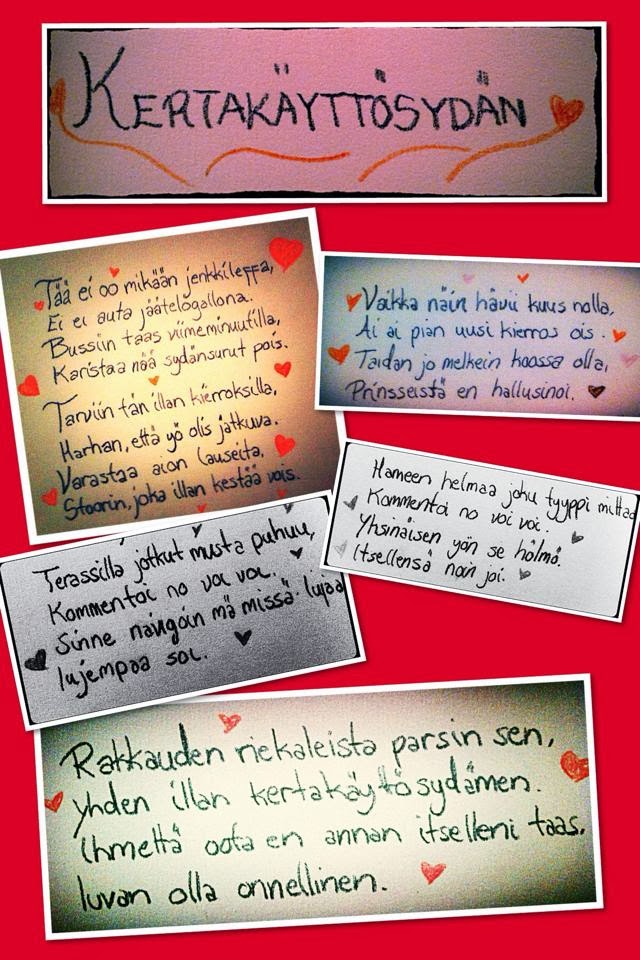 KERTAKÄYTTÖSYDÄN
Tää ei oo mikään jenkkileffa,
Ei ei auta jäätelögallona.
Bussiin taas viimeminuutilla,
Karistaa nää sydänsurut pois.
Tarviin tän illan kierroksilla,
Harhan, että yö olis jatkuva.
Varastaa aion lauseita,
Stoorin, joka illan kestää vois.
Vaikka näin hävii kuus nolla,
Ai ai pian uusi kierros ois.
Taidan jo melkein koossa olla,
Prinsseistä en hallusinoi.
Hameen helmaa joku tyyppi mittaa
Kommentoi no voi voi.
Yksinäisen yön se hölmö.
Itsellensä noin joi.
Terassilla jotkut musta puhuu,
Kommentoi no voi voi.
Sinne näugoin mä missä lujaa
lujempaa soi.
Rakkauden riekaleista parsin sen,
yhden illan kertakäyttösydämen.
Ihmettä oota en annan itselleni taas,
luvan olla onnellinen.